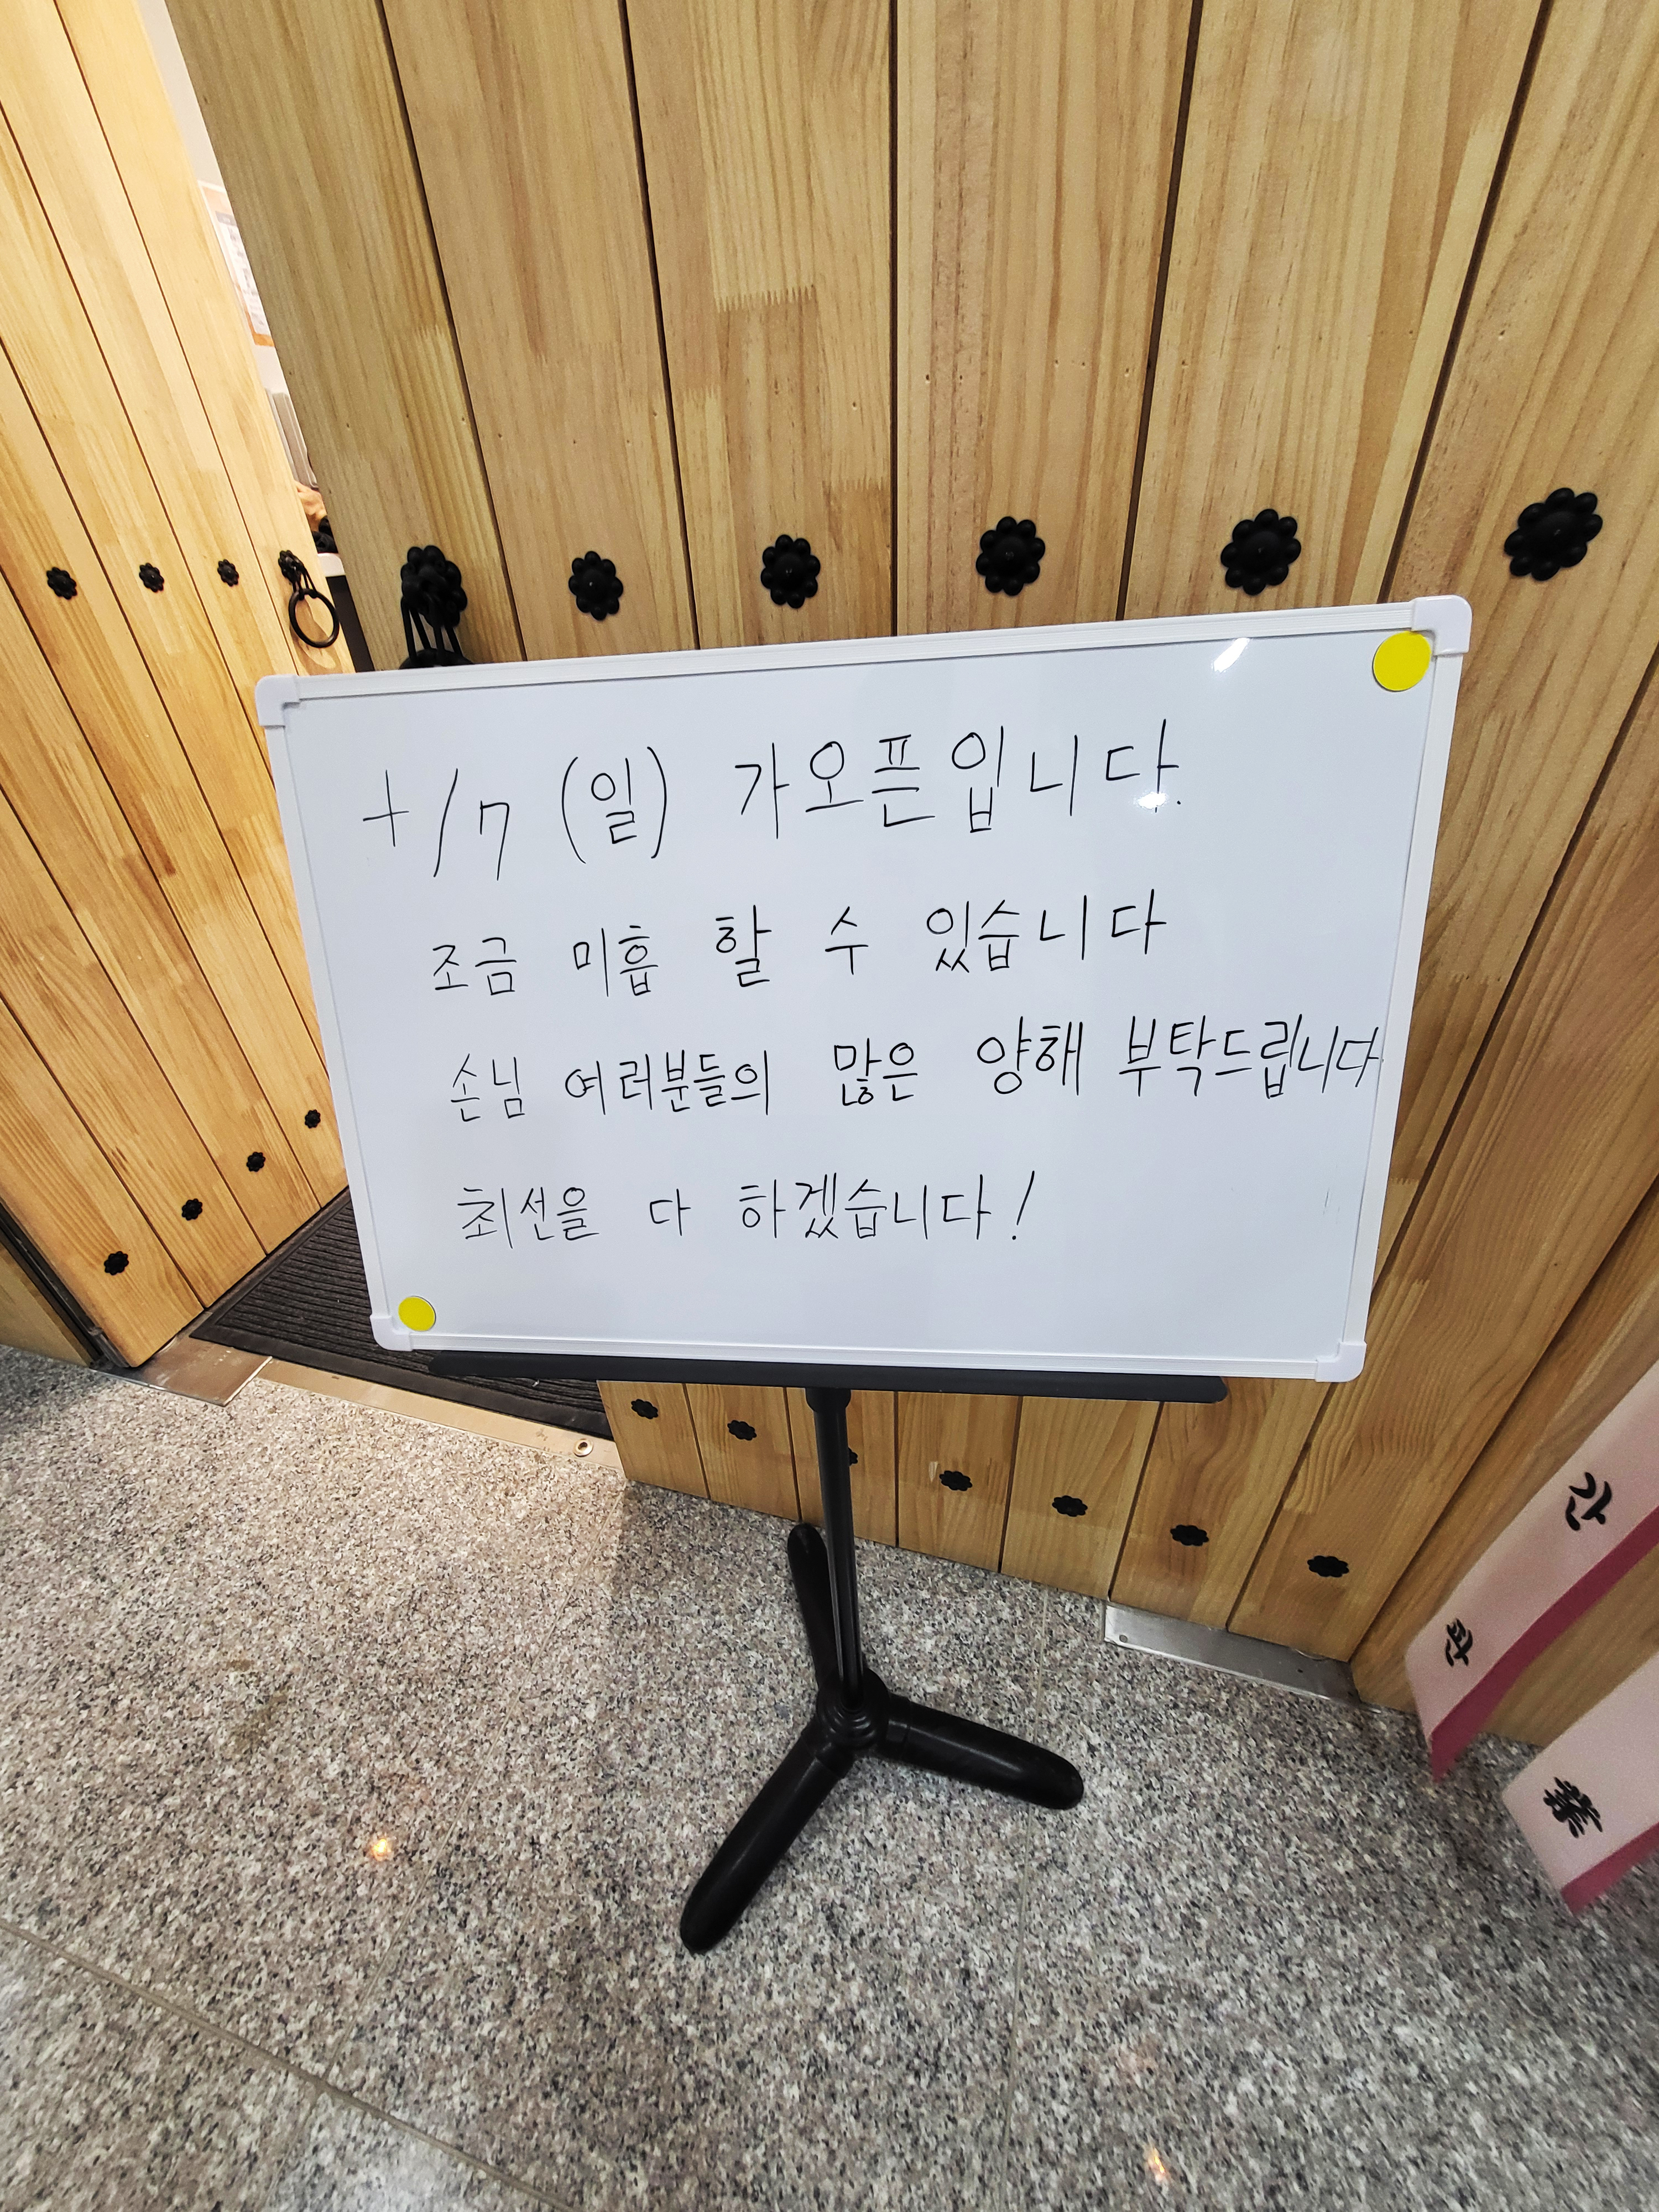 4/7 (일) 가오픈입니다.
조금 미흡 할 수 있습니다
손님 여러분들의 많은 양해 부탁드립니다
최선을 다 하겠습니다!
간
판